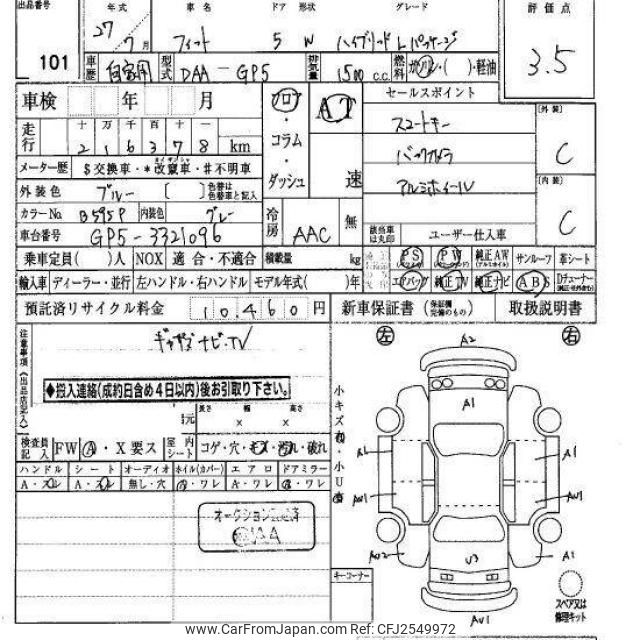 出品番号 年式 車名 ドア 形状 グレード 評価点
101 27年 7月 フィット 5 W ハイブリッド Lパッケージ 3.5
車歴 自家用 型式 DAA-GP5 排気量 1500 c.c. 燃料 ガソリン・( )・軽油
車検 年 月 フロア・コラム・ダッシュ AT 速 セールスポイント
スマートキー
バックカメラ
アルミホイール
走行 十 万 千 百 十 一
2 1 6 3 7 8 km
メーター歴 $交換車・*改竄車・#不明車
外装色 ブルー [ ] 色替は色替車と記入
カラーNo B595P 内装色 グレー
車台番号 GP5-3321096
冷房 AAC 無 該当装備は丸印 ユーザー仕入車
[外装] C
[内装] C
乗車定員( )人 NOX 適合・不適合 積載量 kg
PS PW 純正AW サンルーフ 革シート
輸入車 ディーラー・並行 左ハンドル・右ハンドル モデル年式( )年
エアバック 純正TV 純正ナビ ABS Dチューナー
預託済リサイクル料金 10,460円 新車保証書 (保証欄完備のもの) 取扱説明書
注意事項(出品店記入)
ギャザズナビ・TV
◆搬入連絡(成約日含め4日以内)後お引取り下さい。
諸元 長さ 幅 高さ
x x
検査員記入 FW A・X要ス 室内シート コゲ・穴・キズ・汚れ・破れ
ハンドル シート オーディオ ホイル(カバー) エアロ ドアミラー
A・スレ A・スレ 無し・穴 A・ワレ A・ワレ A・ワレ
左 右
A2
A1
A1 A1
AU1 AU1
AU2 A1
U3
AU1
キーコーナー
スペア又は修理キット
www.CarFromJapan.com Ref: CFJ2549972